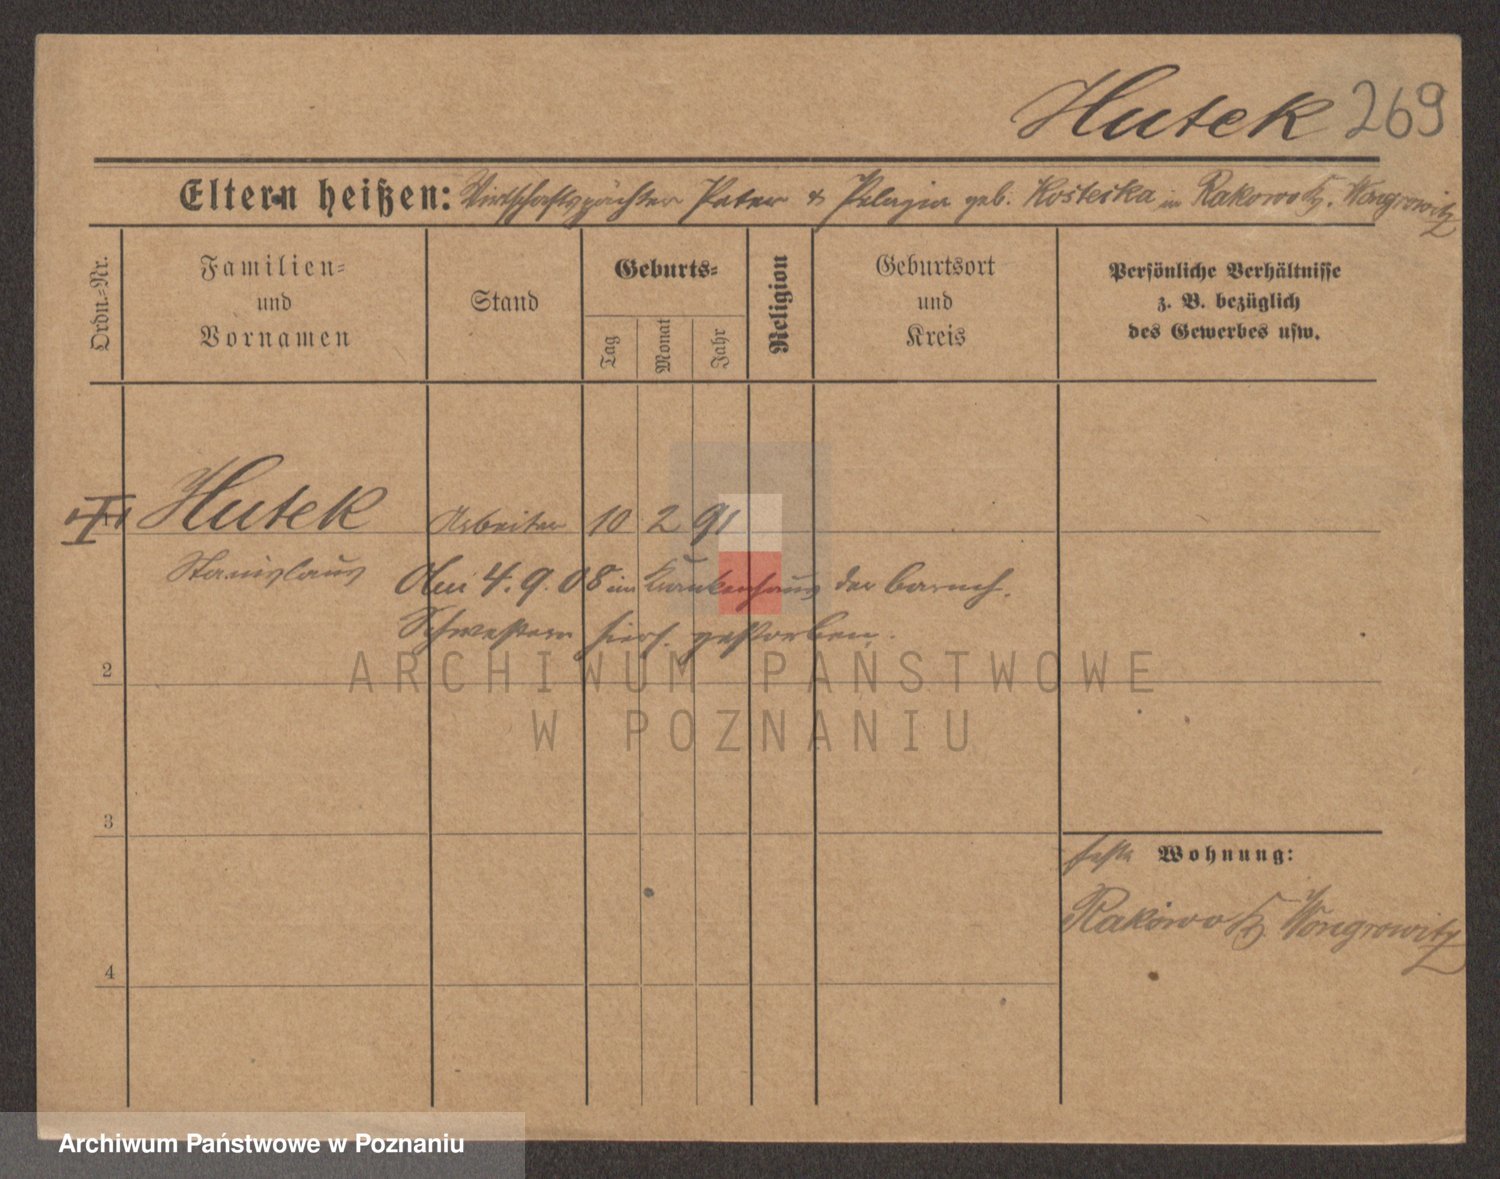 Hutek 269
Eltern heißen: Wirtschaftspächter Peter & Pelagia geb. Kosteska in Rakowo Kr. Wongrowitz
Ordn.-Nr.
Familien-
und
Vornamen
Stand
Geburts-
Tag
Monat
Jahr
Religion
Geburtsort
und
Kreis
Persönliche Verhältnisse
z. B. bezüglich
des Gewerbes usw.
Hutek Arbeiter 10 2 91
Stanislaus
4.9.08 im Krankenhaus der barmh.
Schwestern hiers. gestorben.
2
3
4
feste Wohnung:
Rakowo Kr. Wongrowitz
ARCHIWUM PAŃSTWOWE
W POZNANIU
Archiwum Państwowe w Poznaniu